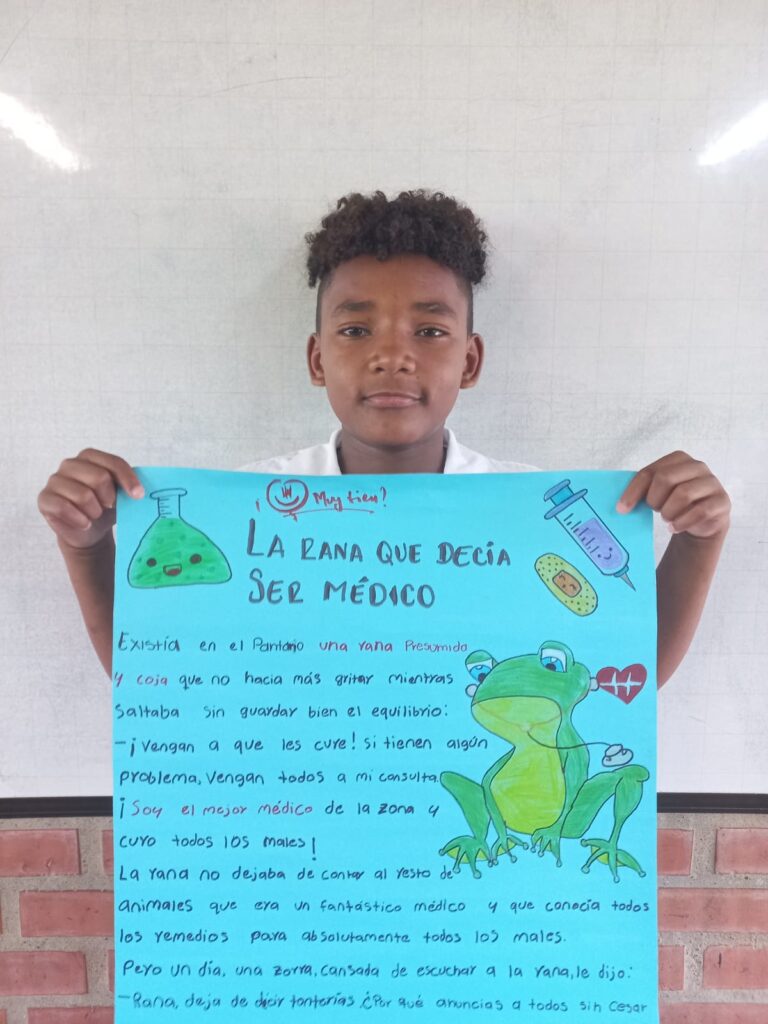 ¡ Muy bien?
LA RANA QUE DECÍA
SER MÉDICO
Existía en el Pantano una rana Presumida
y coja que no hacia más gritar mientras
saltaba sin guardar bien el equilibrio:
-¡Vengan a que les cure! si tienen algún
problema, vengan todos a mi consulta.
¡Soy el mejor médico de la zona y
curo todos los males!
La rana no dejaba de contar al resto de
animales que era un fantástico médico y que conocía todos
los remedios para absolutamente todos los males.
Pero un día, una zorra, cansada de escuchar a la rana, le dijo:
-Rana, deja de decir tonterías ¿Por qué anuncias a todos sin cesar